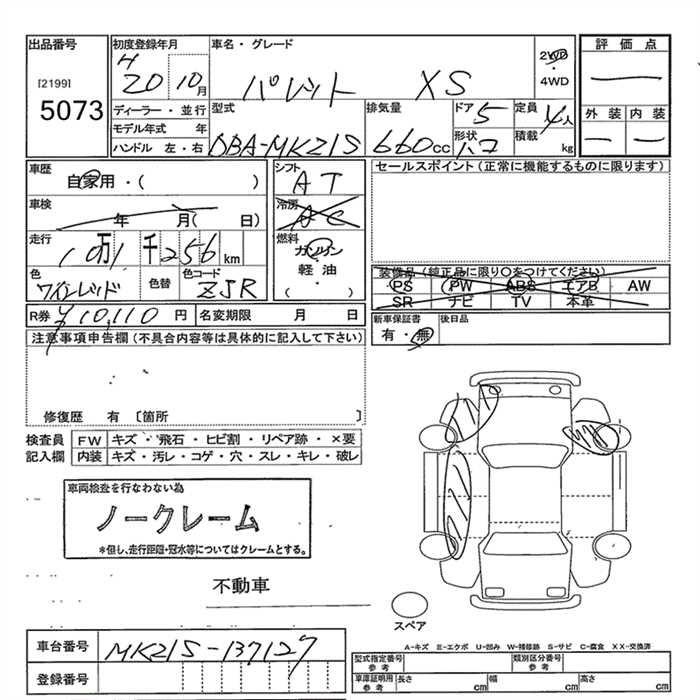 出品番号
[2199]
5073
初度登録年月
H
20 10月
車名・グレード
パレット XS
2WD
・
4WD
評価点
外装 内装
ディーラー・並行
モデル年式 年
ハンドル 左・右
型式
DBA-MK21S
排気量
660cc
ドア 5
形状
ハコ
定員
4人
積載
kg
車歴
自家用・( )
シフト
AT
車検
年 月( 日)
冷房
AC
走行
10万1千256km
燃料
ガソリン
・
軽油
( ・ )
色
ワインレッド
色替
色コード
ZJR
R券 ¥10,110円
名変期限 月 日
セールスポイント(正常に機能するものに限ります)
装備品(純正品に限り〇をつけてください)
PS PW ABS エアB AW
SR ナビ TV 本革
新車保証書
有・無
後日品
注意事項申告欄(不具合内容等は具体的に記入して下さい)
修復歴 有 〔箇所 〕
検査員
記入欄
FW キズ・飛石・ヒビ割・リペア跡・×要
内装 キズ・汚レ・コゲ・穴・スレ・キレ・破レ
車両検査を行なわない為
ノークレーム
*但し、走行距離・冠水等についてはクレームとする。
不動車
スペア
A-キズ E-エクボ U-凹み W-補修跡 S-サビ C-腐食 XX-交換済
車台番号 MK21S-137127
登録番号
型式指定番号
参考
類別区分番号
参考
車庫証明用
参考
長さ cm 幅 cm 高さ cm